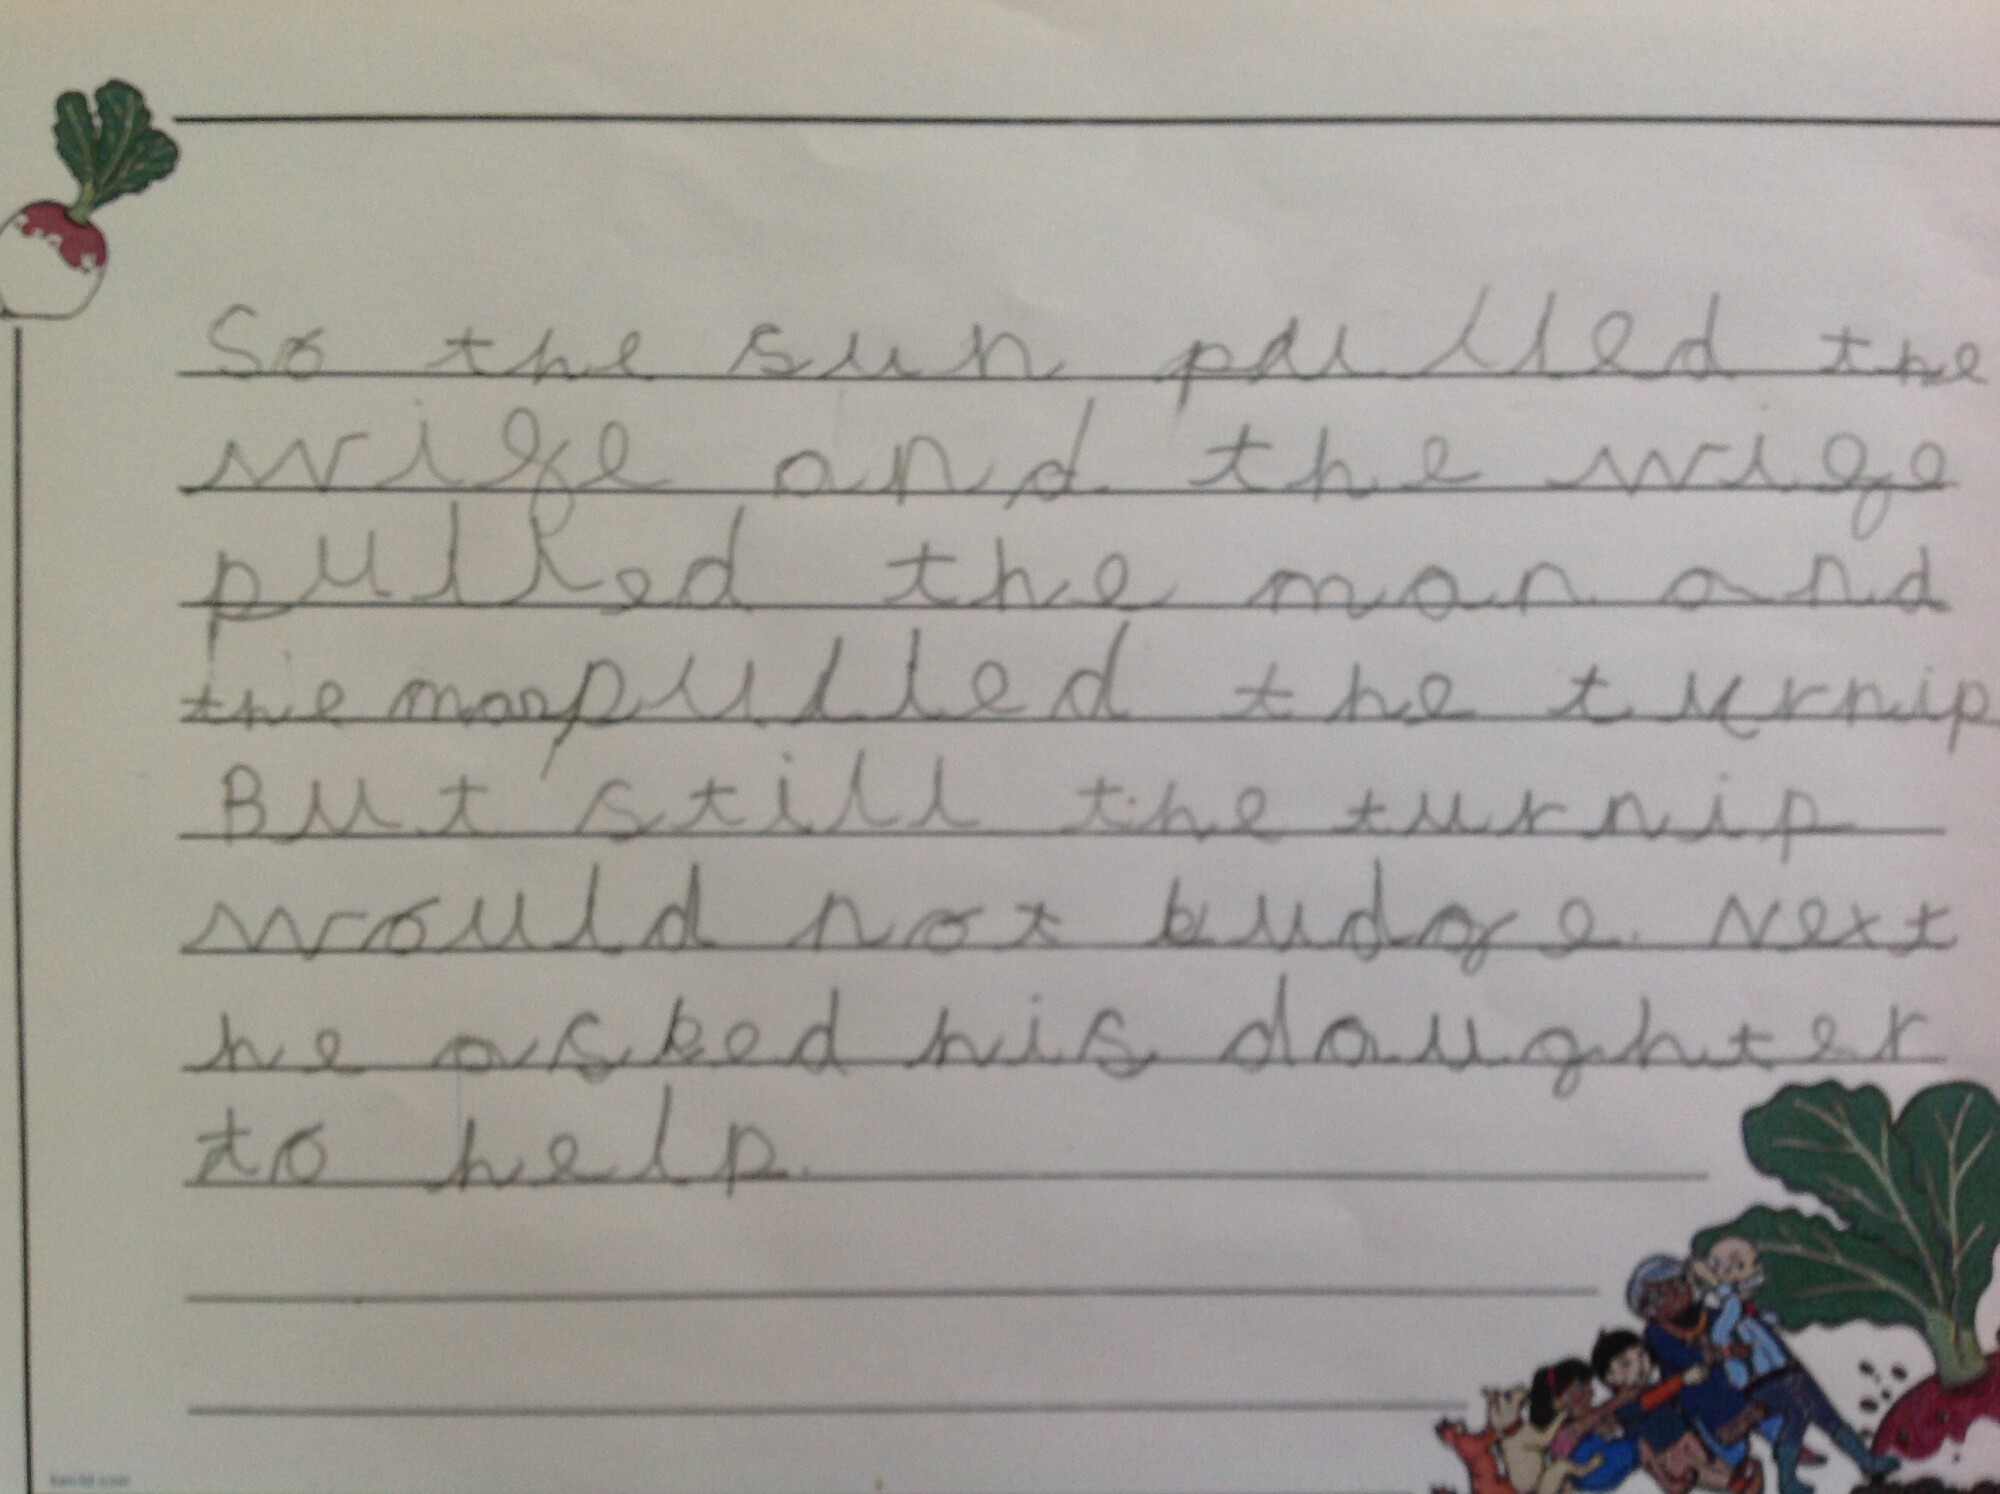 So the sun pulled the
wife and the wife
pulled the man and
the man pulled the turnip
But still the turnip
would not budge. Next
he asked his daughter
to help.